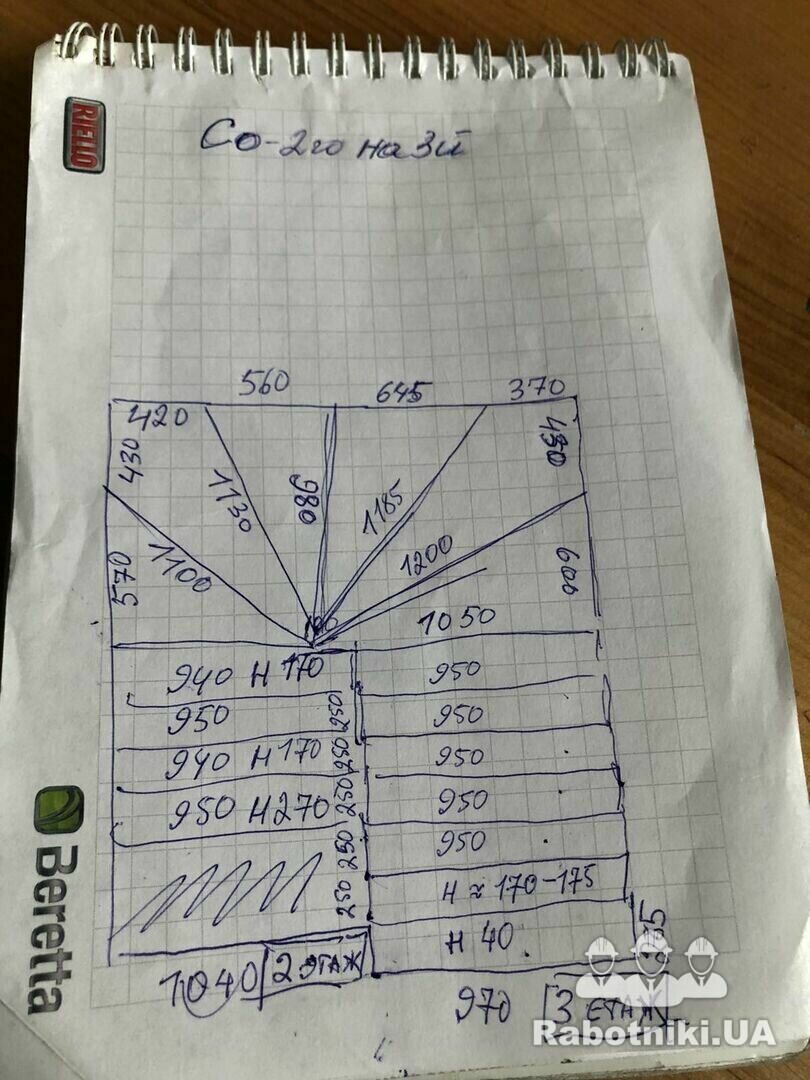 RIELLO
Со-2го на 3й
560 645 370
420
430 450
1130 980 1185
1100 1200
570 600
1050
940 H 170 950
950 250 950
940 H 170 250 950
950 H 270 250 950
250 950
250 H ≈ 170-175
H 40
1040 2 ЭТАЖ
970 3 ЕТАЖ
Beretta
Rabotniki.UA